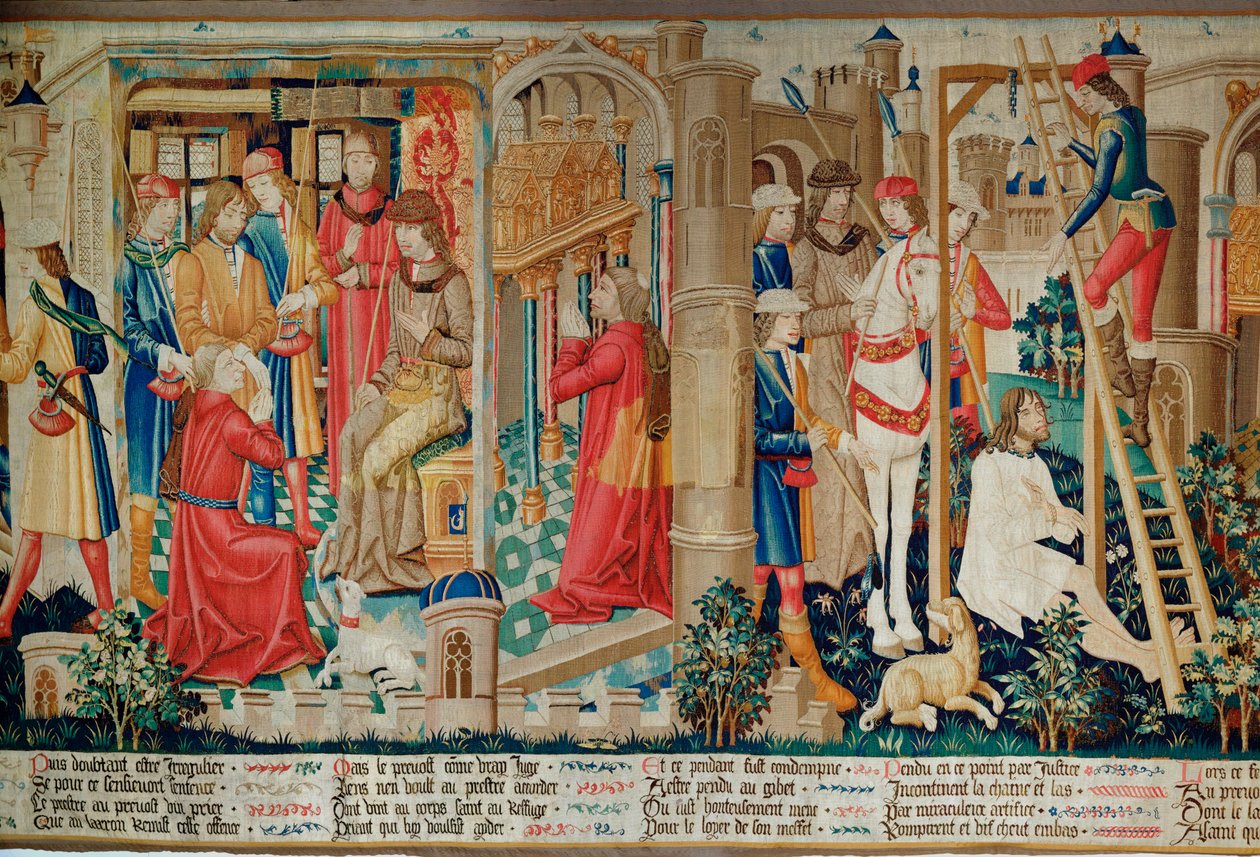 Puis doubtant estre Irregulier
Se pour ce sensieuoit sentence
Le prestre au preuost vin prier
Que au larron Remist celle offence
Mais le preuost cōme vray Juge
Riens nen voult au prestre accorder
Dont vint au corps saint au Reffuge
Priant qui luy voulsist ayder
Et ce pendant fust condempne
Aestre pendu au gibet
Ou fust honteusement mene
Pour le loyer de son meffet
Pendu en ce point par Justice
Incontinent la chaine et las
Par miraculeux artifice
Rompirent et vif cheut embas
Lors ce
Au
Dont